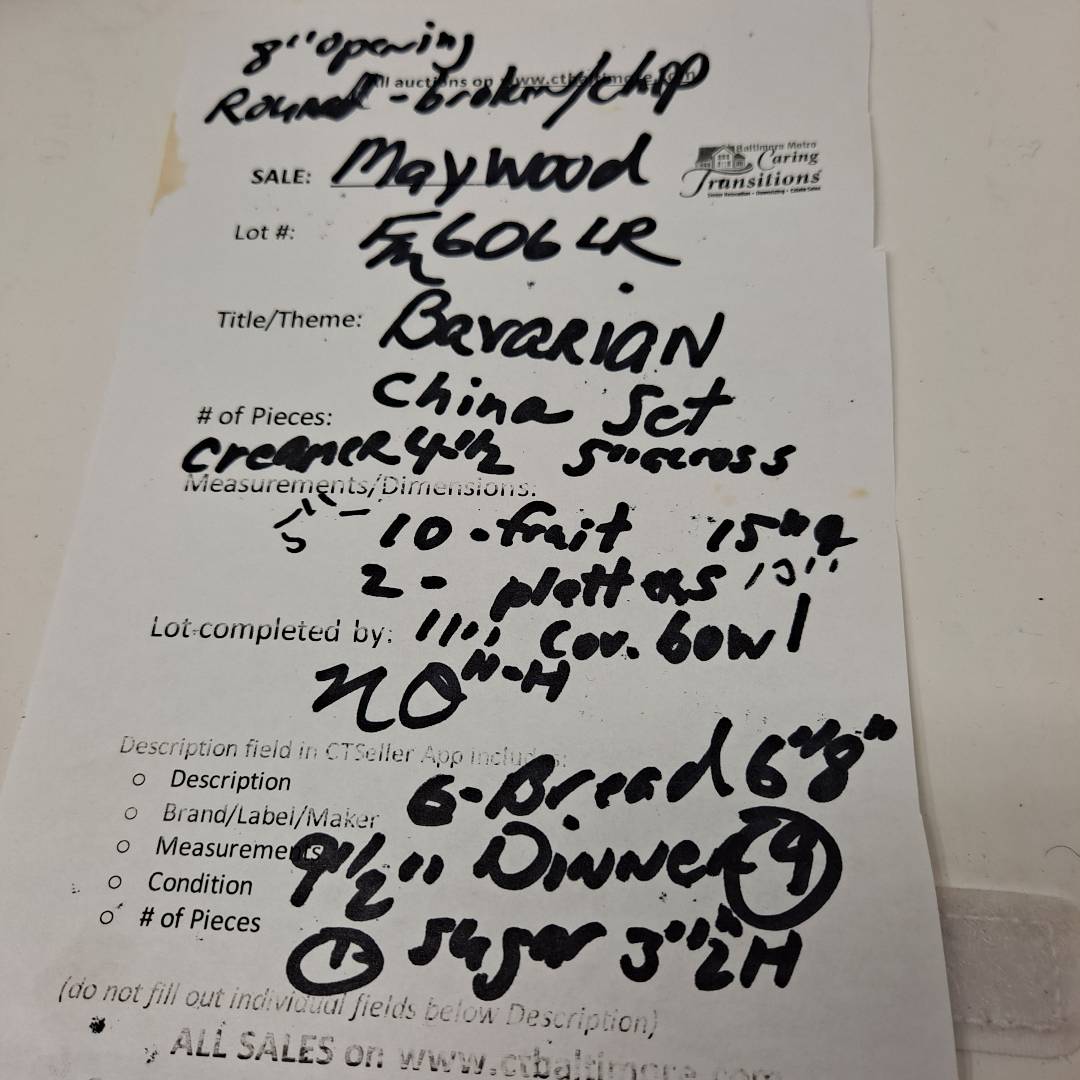 8" opening
All auctions on www.ctbaltimore.com
Round - broken/chip
SALE: Maywood
Baltimore Metro
Caring
Transitions
Lot #: Fm 606 LR
Title/Theme: BavaRIAN
China Set
# of Pieces:
CreameR 4"1/2 5" across
Measurements/Dimensions:
5" - 10 - fruit 15"
2 - platters 13"
Lot completed by: 11" Cov. bowl
Description field in CTSeller App includes:
Description
6 - Bread 6"1/8"
Brand/Label/Maker
Measurements
9 1/2" Dinner 9
Condition
# of Pieces
Sugar 3"1/2" H
(do not fill out individual fields below Description)
ALL SALES on www.ctbaltimore.com